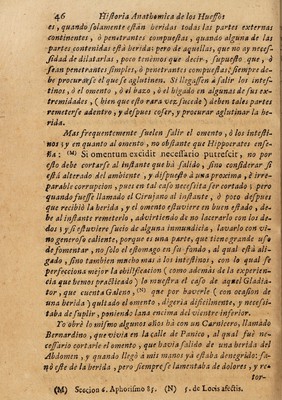 46 Historia Anathomica de los Huessos
es, quando solamente están heridas todas las partes externas
continentes, ò penetrantes compuestas, quando alguna de las
partes contenidas està herida; pero de aquellas, que no ay neces-
sidad de dilatarlas, poco tenèmos que decir, supuesto que, ò
sean penetrantes simples, ò penetrantes compuestas; siempre de-
be procurarse el que se aglutinen. Si llegassen à salir los intes-
tinos, ò el omento, ò el bazo, ò el higado en algunas de sus ex-
tremidades, (bien que esto rara vez sucede) deben tales partes
remeterse adentro, y despues coser, y procurar aglutinar la he-
rida.
Mas frequentemente suelen salir el omento, ò los intesti-
nos; y en quanto al omento, no obstante que Hippocrates ense-
ña: (M) Si omentum excidit necessario putrescit; no por
esto debe cortarse al instante que hà salido, sino considerar si
està alterado del ambiente, y dispuesto à una proxima, è irre-
parable corrupcion, pues en tal caso necesita ser cortado; pero
quando fuesse llamado el Cirujano al instante, ò poco despues
que recibiò la herida, y el omento estuviere en buen estado, de-
be al instante remeterlo, advirtiendo de no lacerarlo con los de-
dos; y si estuviere sucio de alguna inmundicia, lavarlo con vi-
no generoso caliente, porque es una parte, que tiene grande uso
de fomentar, no solo el estomago en su fondo, al qual està ali-
gado, sino tambien mucho mas à los intestinos, con lo qual se
perfecciona mejor la chilificacion (como además de la experien-
cia que hemos practicado) lo muestra el caso de aquel Gladia-
tor, que cuenta Galeno, (N) que por haverle (con ocasion de
una herida) quitado el omento, digeria dificilmente, y necessi-
taba de suplir, poniendo lana encima del vientre inferior.
Yo obrè lo mismo algunos años hà con un Carnicero, llamado
Bernardino, que vivia en la calle de Panico, al qual fuè ne-
cessario cortarle el omento, que havia salido de una herida del
Abdomen, y quando llegò à mis manos yà estaba denegrido: sa-
nò este de la herida, pero siempre se lamentaba de dolores, y re-
tor-
(M) Seccion 6. Aphorismo 85. (N) 5. de Locis afectis.